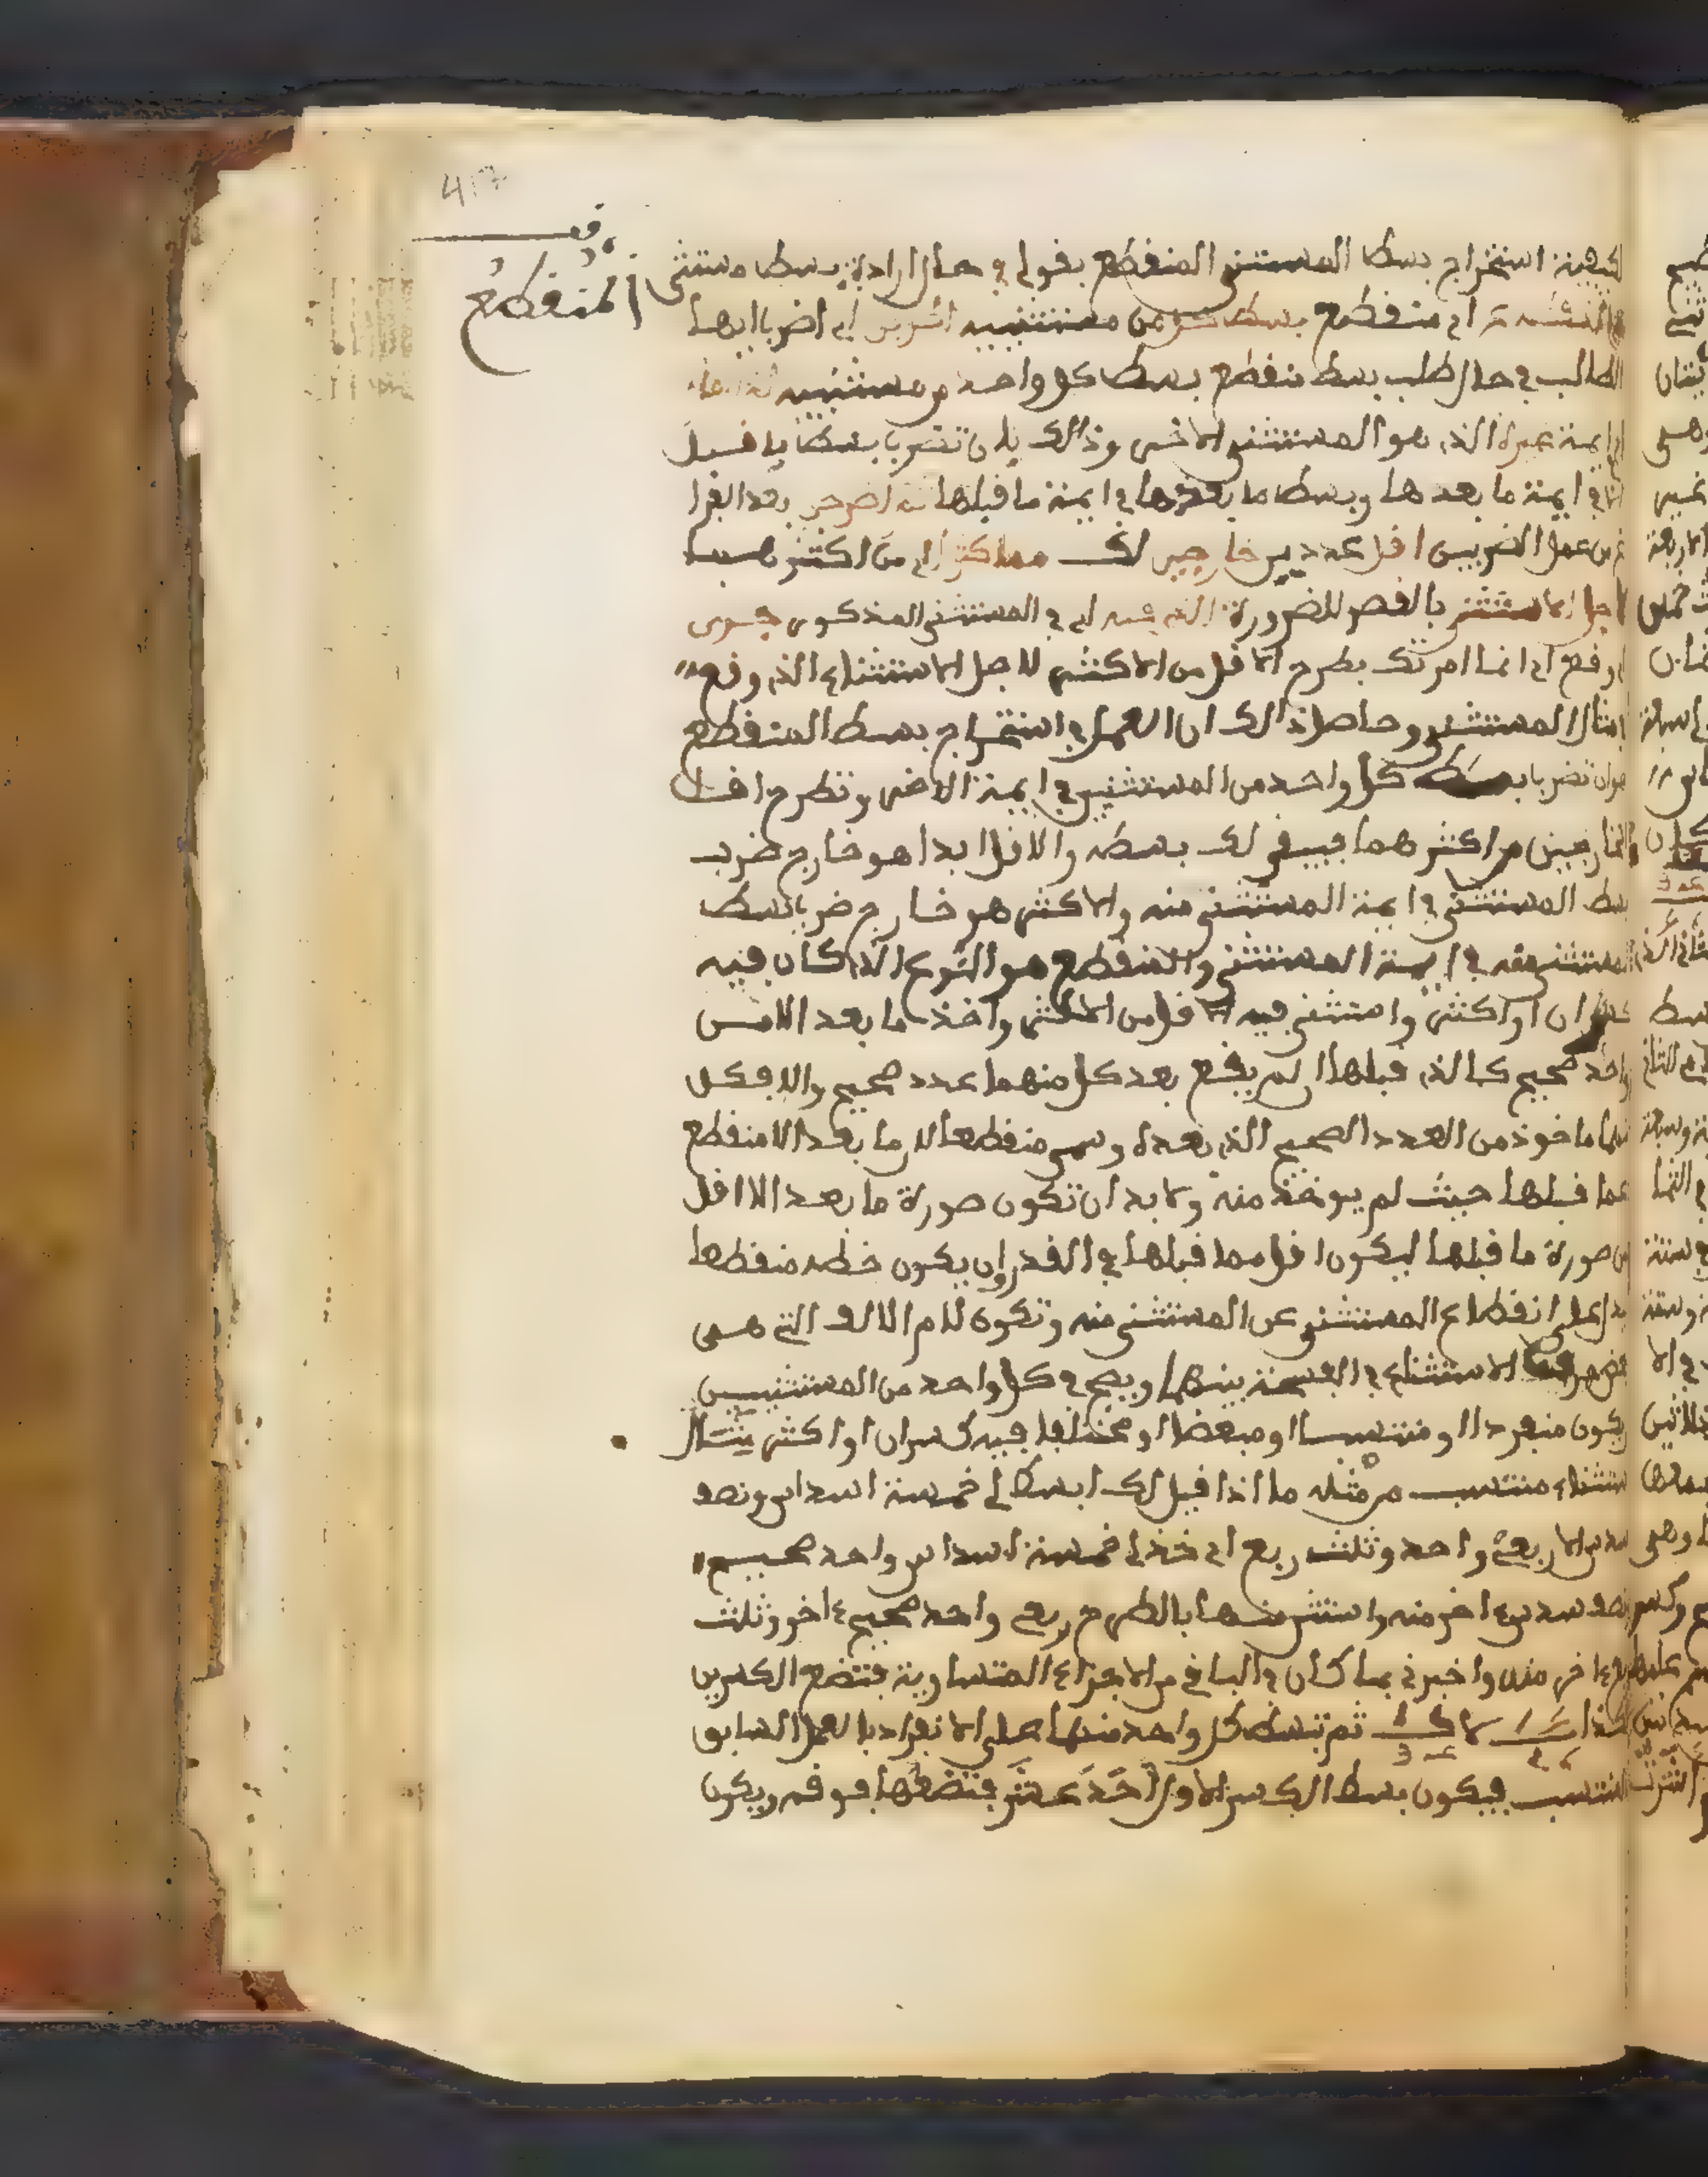 417
وقف
المنقطع
لكيفية استخراج بسط المستثنى المنقطع بقولي في حال ارادة بسط مستثنى
اي منقطع بسط كل من مستثنييه اضربن اي اضرب ايها
الطالب في حال طلب بسط منقطع بسط كل واحد من مستثنييه
ايمة غيره الذي هو المستثنى الاخر وذالك بان تضرب بسط ما قبل
في ايمة ما بعدها وبسط ما بعدها في ايمة ما قبلها ثم اطرحن بعد الفرا
غ من عمل الضربين اقل عددين خارجين لك مما كثر اي من اكثرهما
لاجل الاستثنا بالقصر للضرورة الذي فيه اي في المستثنى المذكور جرى
اي وقع اي انما امرتك بطرح الاقل من الاكثر لاجل الاستثناء الذي وقع
المستثنى وحاصل ذالك ان العمل في استخراج بسط المنقطع
هو ان تضرب بسط كل واحد من المستثنيين في ايمة الاخر وتطرح اقل
الخارجين من اكثرهما فيبقى لك بسطه والاقل ابدا هو خارج ضرب
بسط المستثنى في ايمة المستثنى منه والاكثر هو خارج ضرب بسط
المستثنى منه في ايمة المستثنى والمنقطع هو النوع الذي كان فيه
كسران او اكثر واستثني فيه الاقل من الاكثر واخذ ما بعد الا من
واحد صحيح كالذي قبلها ان لم يقع بعد كل منهما عدد صحيح والا فكل
منهما ماخوذ من العدد الصحيح الذي بعده وسمي منقطعا لان ما بعد الا منقطع
عما قبلها حيث لم يوخذ منه ولا بد ان تكون صورة ما بعد الا اقل
من صورة ما قبلها ليكون اقل مما قبلها في القدر وان يكون خطه منقطعا
ليدل على انقطاع المستثنى عن المستثنى منه وتكون لام الالف التي هي
الاستثناء في القسمة بينهما ويصح في كل واحد من المستثنيين
ان يكون منفردا او منتسبا او مبعضا او مختلفا فيه كسران او اكثر مثال
استثناء منتسب من مثله ما اذا قيل لك ابسط لي خمسة اسداس ونصف
سدس الا ربع واحد وثلث ربع اي خذ لي خمسة اسداس واحد صحيح
ونصف سدس ءاخر منه واستثن منها بالطرح ربع واحد صحيح ءاخر وثلث
ربع ءاخر منه واخبرني بما كان في الباقي من الاجزاء المتساوية فتضع الكسرين
هكذا ثم تبسط كل واحد منهما على الانفراد بالعمل السابق
في المنتسب فيكون بسط الكسر الاول احد عشر فتضعها فوقه ويكون